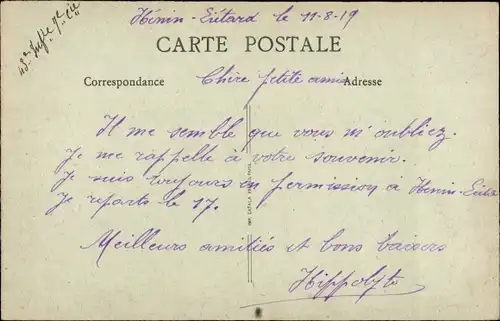 Hénin-Liétard le 11-8-19
CARTE POSTALE
Correspondance
Adresse
Chère petite amie
Il me semble que vous m'oubliez.
Je me rappelle à votre souvenir.
Je suis toujours en permission à Hénin-Liéta
Je reparts le 17.
Meilleurs amitiés et bons baisers
Hippolyte